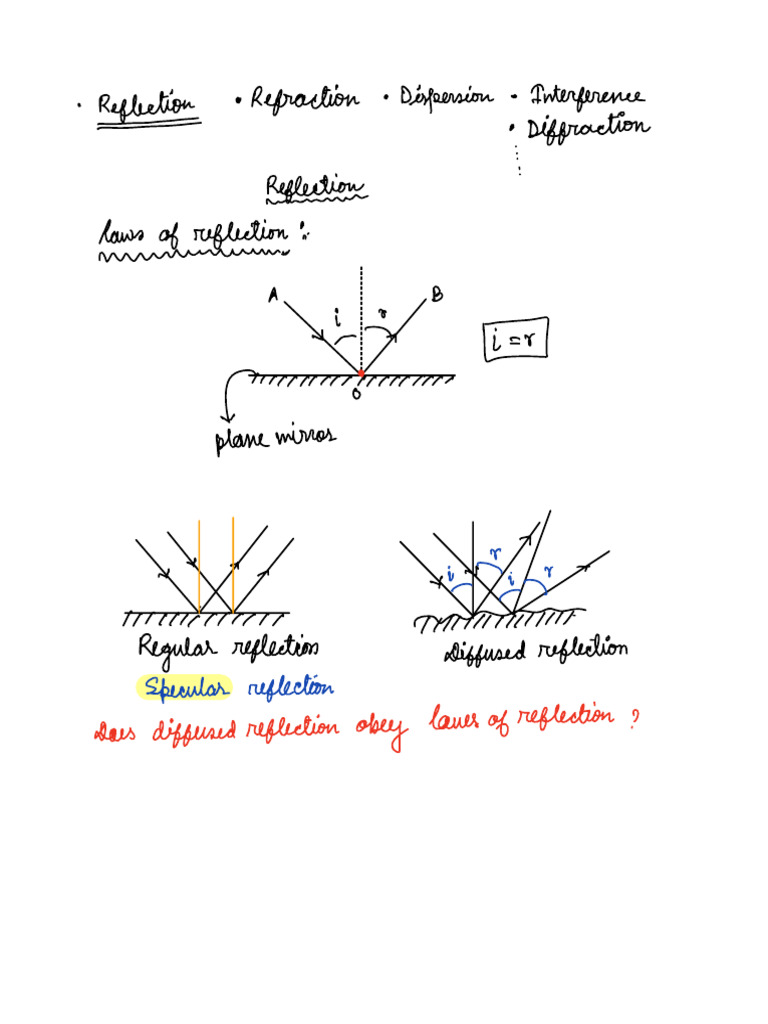 · Reflection • Refraction • Dispersion - Interference
• Diffraction
Reflection
laws of reflection :-
A i r B
i = r
O
plane mirror
i r i r
Regular reflection Diffused reflection
Specular reflection
Does diffused reflection obey laws of reflection ?